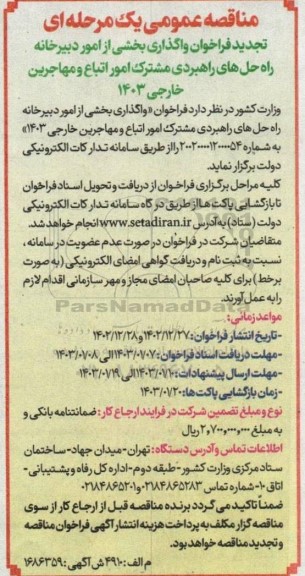 مناقصه عمومی یک مرحله ای
تجدید فراخوان واگذاری بخشی از امور دبیرخانه
راه حل های راهبردی مشترک امور اتباع و مهاجرین
خارجی ۱۴۰۳
وزارت کشور در نظر دارد فراخوان «واگذاری بخشی از امور دبیرخانه
راه حل های راهبردی مشترک امور اتباع و مهاجرین خارجی ۱۴۰۳»
به شماره ۲۰۰۲۰۰۰۰۱۲۰۰۰۰۵۴ را از طریق سامانه تدارکات الکترونیکی
دولت برگزار نماید.
کلیه مراحل برگزاری فراخوان از دریافت و تحویل اسناد فراخوان
تا بازگشایی پاکت ها از طریق درگاه سامانه تدارکات الکترونیکی
دولت (ستاد) به آدرس www.setadiran.ir انجام خواهد شد.
متقاضیان شرکت در فراخوان در صورت عدم عضویت در سامانه،
نسبت به ثبت نام و دریافت گواهی امضای الکترونیکی (به صورت
برخط) برای کلیه صاحبان امضای مجاز و مهر سازمانی اقدام لازم
را به عمل آورند.
مواعد زمانی:
-تاریخ انتشار فراخوان: ۱۴۰۲/۱۲/۲۷ و ۱۴۰۲/۱۲/۲۸
-مهلت دریافت اسناد فراخوان: ۱۴۰۳/۰۷/۰۷ الی ۱۴۰۳/۰۷/۰۸
-مهلت ارسال پیشنهادات: ۱۴۰۳/۰۷/۱۰ الی ۱۴۰۳/۰۷/۱۹
-زمان بازگشایی پاکت ها: ۱۴۰۳/۰۷/۲۰
نوع و مبلغ تضمین شرکت در فرایند ارجاع کار: ضمانتنامه بانکی و
به مبلغ ۲،۷۰۰،۰۰۰،۰۰۰ ریال
اطلاعات تماس و آدرس دستگاه: تهران-میدان جهاد-ساختمان
ستاد مرکزی وزارت کشور-طبقه دوم-اداره کل رفاه و پشتیبانی-
اتاق ۱۰-شماره تماس ۰۲۱۸۴۸۶۵۲۸۳ و ۰۲۱۸۴۸۶۵۲۰۱
ضمناً تاکید می گردد برنده مناقصه قبل از ارجاع کار از سوی
مناقصه گزار مکلف به پرداخت هزینه انتشار آگهی فراخوان مناقصه
و تجدید مناقصه خواهد بود.
م الف: ۴۹۱۰ ش آگهی: ۱۶۸۶۳۵۹
ParsNamadData